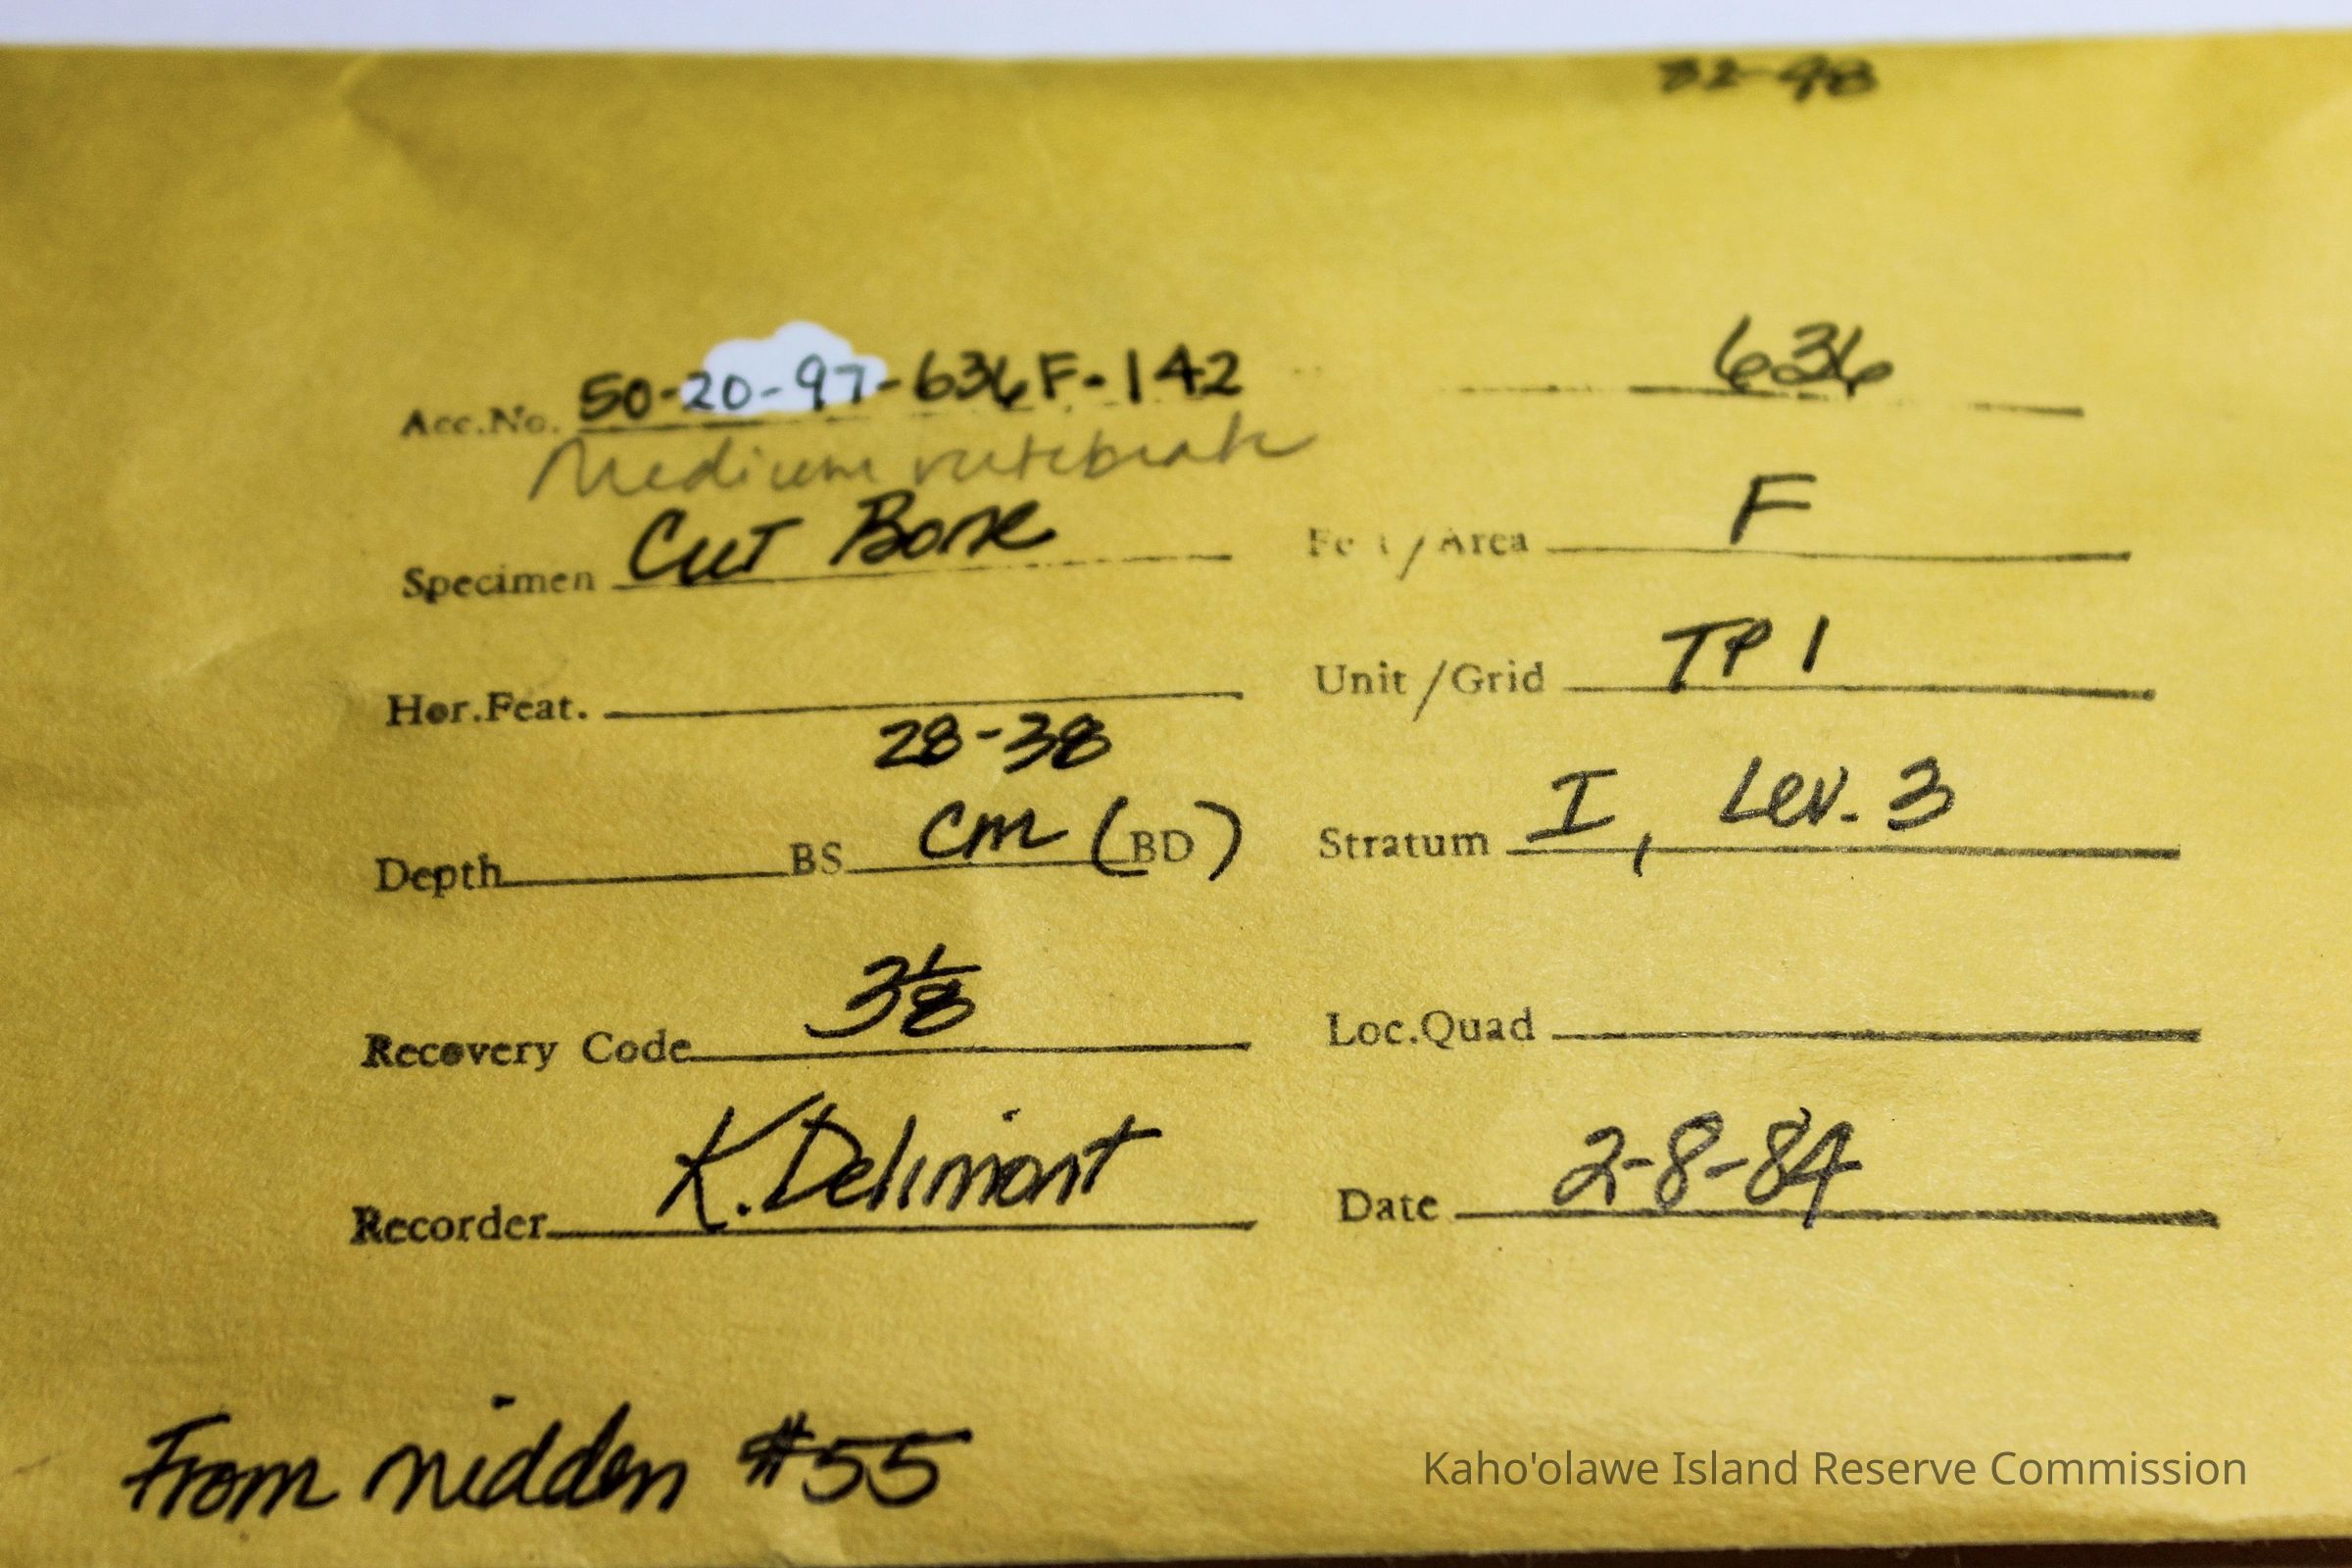 82-98
Acc.No. 50-20-97-636F-142 636
Medium vertebrate
Specimen Cut Bone / Area F
Hor.Feat. Unit /Grid TP 1
28-38
Depth BS cm (BD) Stratum I, Lev. 3
Recovery Code 3 1/8 Loc.Quad
Recorder K. Delimont Date 2-8-84
From midden #55
Kaho'olawe Island Reserve Commission